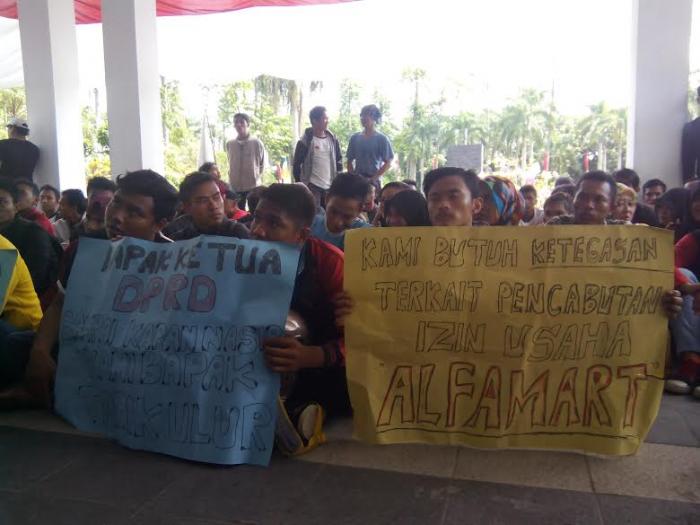 BAPAK KETUA
DPRD
KAPAN NASIB
KAMI BAPAK
ULUR
KAMI BUTUH KETEGASAN
TERKAIT PENCABUTAN
IZIN USAHA
"ALFAMART"